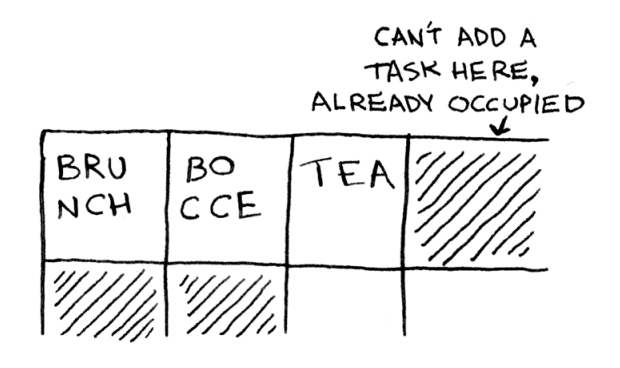 CAN'T ADD A
TASK HERE,
ALREADY OCCUPIED
BRU
NCH
BO
CCE
TEA